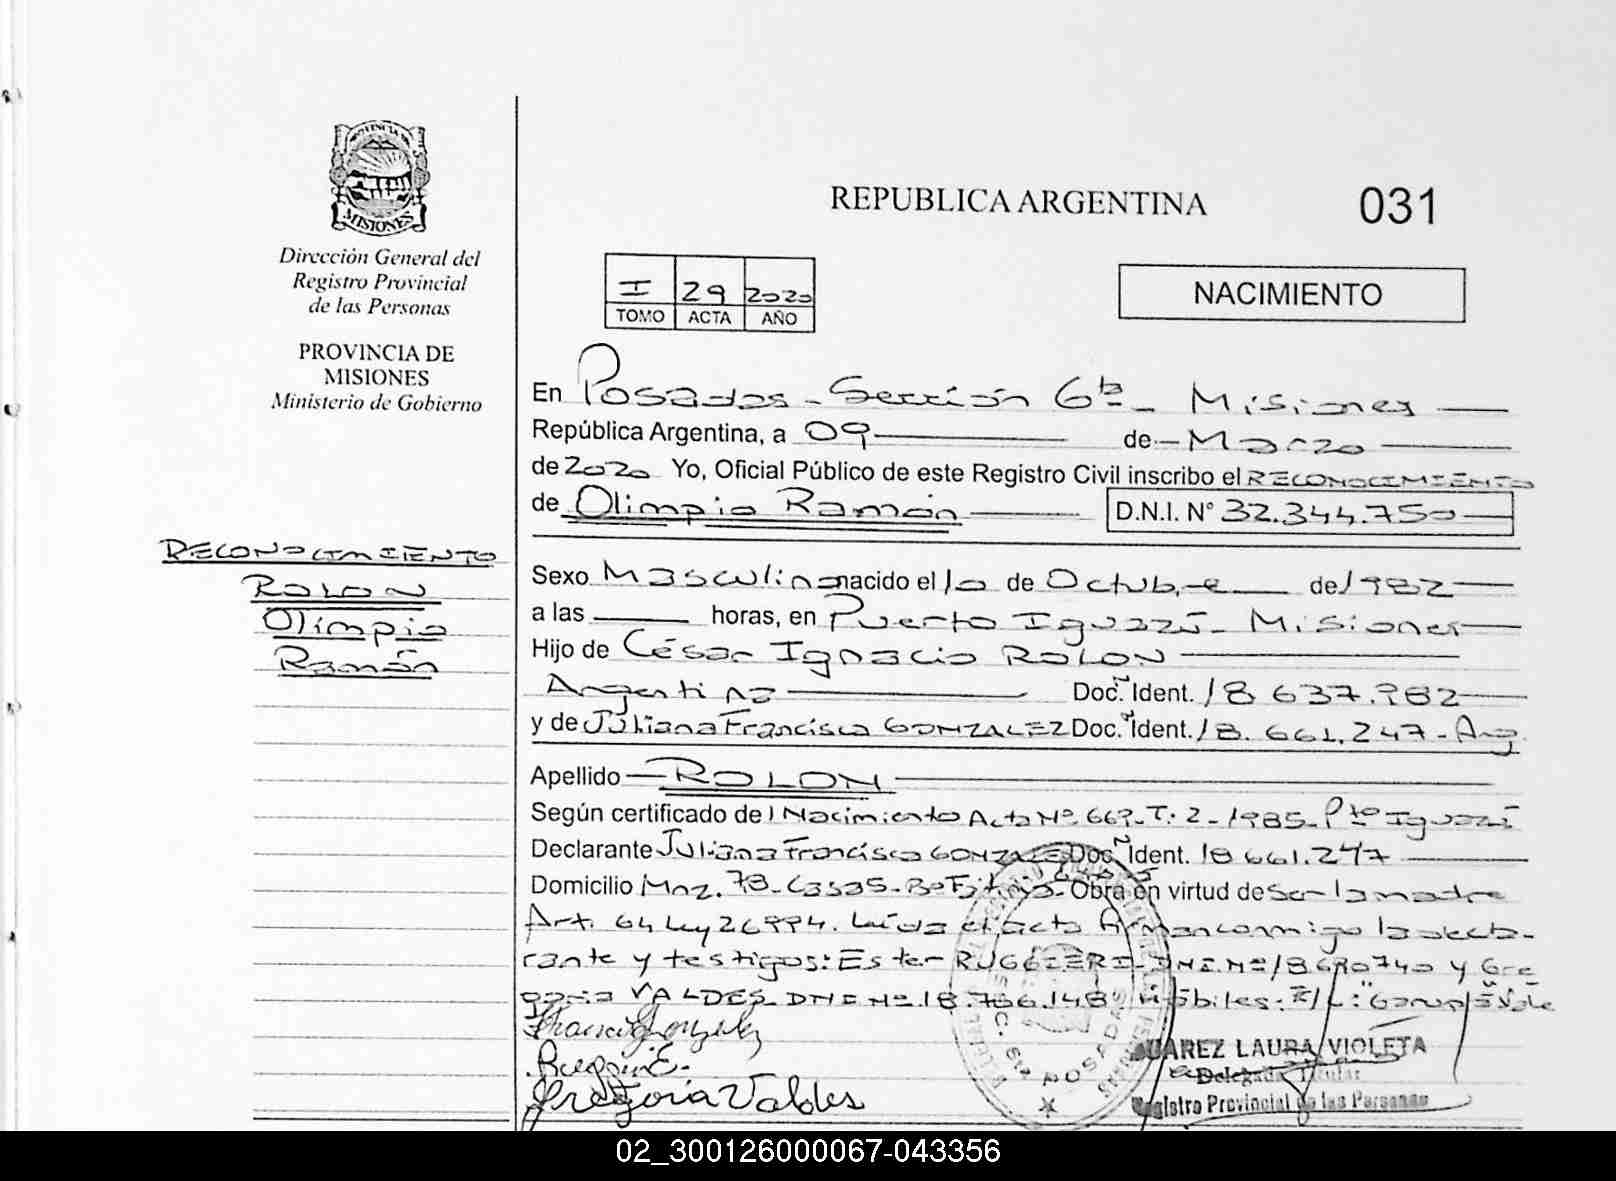 PROVINCIA DE
MISIONES
Dirección General del
Registro Provincial
de las Personas
PROVINCIA DE
MISIONES
Ministerio de Gobierno
REPUBLICA ARGENTINA 031
I 29 2020
TOMO ACTA AÑO
NACIMIENTO
En Posadas - Sección 6ta - Misiones
República Argentina, a 09 de Marzo
de 2020 Yo, Oficial Público de este Registro Civil inscribo el RECONOCIMIENTO
de Olimpio Ramón D.N.I. N° 32.344.750
RECONOCIMIENTO
ROLON
Olimpio
Ramón
Sexo Masculino nacido el 10 de Octubre de 1982
a las horas, en Puerto Iguazú - Misiones
Hijo de César Ignacio ROLON
Argentina Doc. Ident. 18 637.982
y de Juliana Francisca GONZALEZ Doc. Ident. 18.661.247 - Arg.
Apellido ROLON
Según certificado de Nacimiento Acta Nº 669 - T: 2 - 1985 - Pto Iguazú
Declarante Juliana Francisca GONZALEZ Doc. Ident. 18 661.247
Domicilio Mnz. 78 - C3535 - Obra en virtud de Ser la madre
Art. 64 Ley 26994. Leída el acta firman conmigo la decla-
rante y testigos: Ester RUGGIERI - DNI. Nº 18680740 y Gre
goria VALDES DNI Nº 18.766.148 hábiles:
Francisca González
Ruggieri E.
Gregoria Valdes
POSADAS
SUAREZ LAURA VIOLETA
Delegada Titular
Registro Provincial de las Personas
02_300126000067-043356